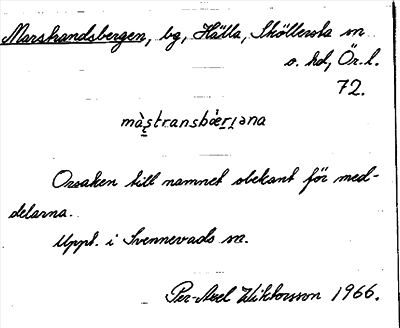 Marstrandsbergen, bg, Hälla, Sköllersta sn
s. hd, Ör. l.
72.
màs̩transbæ̀r̩j̩əna
Orsaken till namnet obekant för med-
delarna.
Uppt. i Svennevads sn.
Per-Axel Wiktorsson 1966.